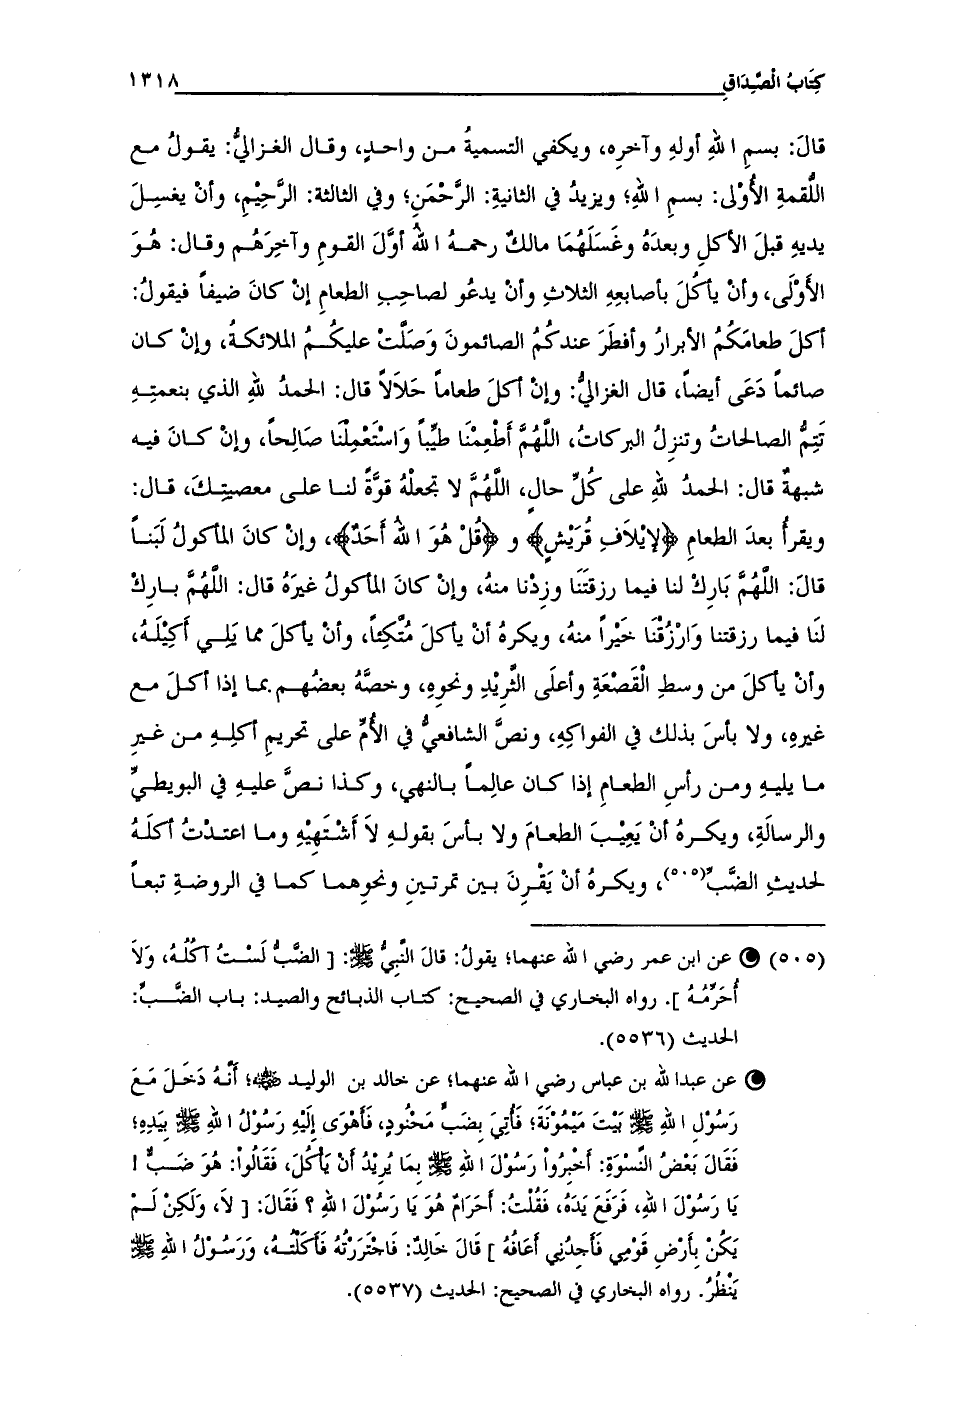 كِتَابُ الْصَّدَاقِ ١٣١٨
قالَ: بسمِ اللهِ أولهِ وآخرِه، ويكفي التسميةُ من واحدٍ، وقال الغزاليُّ: يقولُ مع
اللُّقمةِ الأُوْلى: بسمِ اللهِ؛ ويزيدُ في الثانيةِ: الرَّحْمَنِ؛ وفي الثالثة: الرَّحِيْمِ، وأنْ يغسِلَ
يديهِ قبلَ الأكلِ وبعدَهُ وغَسَلَهُمَا مالكٌ رحمهُ اللهُ أوَّلَ القومِ وآخِرَهُم وقال: هُوَ
الأَوْلَى، وأنْ يأكُلَ بأصابعِهِ الثلاثِ وأنْ يدعُو لصاحِبِ الطعامِ إنْ كانَ ضيفاً فيقولُ:
أكلَ طعامَكُمُ الأبرارُ وأفطَرَ عندكُمُ الصائمونَ وَصَلَّتْ عليكُمُ الملائكةُ، وإنْ كان
صائماً دَعَى أيضاً، قال الغزاليُّ: وإنْ أكلَ طعاماً حَلاَلاً قال: الحمدُ للهِ الذي بنعمتِهِ
تَتِمُّ الصالحاتُ وتنزِلُ البركاتُ، اللَّهُمَّ أَطْعِمْنَا طَيِّباً وَاسْتَعْمِلْنَا صَالِحاً، وإنْ كانَ فيه
شبهةٌ قال: الحمدُ للهِ على كُلِّ حالٍ، اللَّهُمَّ لا تجعلْهُ قوَّةً لنا على معصيتِكَ، قال:
ويقرأُ بعدَ الطعامِ ﴿لإيْلاَفِ قُرَيْشٍ﴾ و ﴿قُلْ هُوَ اللهُ أَحَدٌ﴾، وإنْ كانَ المأكولُ لَبَناً
قالَ: اللَّهُمَّ بَارِكْ لنا فيما رزقتَنَا وزِدْنا منهُ، وإنْ كانَ المأكولُ غيرَهُ قال: اللَّهُمَّ بارِكْ
لنَا فيما رزقتنا وَارْزُقْنَا خَيْراً منهُ، ويكرهُ أنْ يأكلَ مُتَّكِئاً، وأنْ يأكلَ مما يَلِي أَكِيْلَهُ،
وأنْ يأكلَ من وسطِ الْقَصْعَةِ وأعلَى الثَّرِيْدِ ونحوِهِ، وخصَّهُ بعضُهم بما إذا أكلَ مع
غيرِهِ، ولا بأسَ بذلك في الفواكِهِ، ونصَّ الشافعيُّ في الأُمِّ على تحريمِ أكلِهِ من غيرِ
ما يليهِ ومن رأسِ الطعامِ إذا كان عالِماً بالنهي، وكذا نصَّ عليهِ في البويطيِّ
والرسالَةِ، ويكرهُ أنْ يَعِيْبَ الطعامَ ولا بأسَ بقولهِ لاَ أَشْتَهِيْهِ وما اعتدْتُ أكلَهُ
لحديثِ الضَّبِّ(٥٠٥)، ويكرهُ أنْ يَقْرِنَ بين تمرتينِ ونحوِهما كما في الروضةِ تبعاً
(٥٠٥) عن ابن عمر رضي الله عنهما؛ يقولُ: قالَ النَّبِيُّ ﷺ: [ الضَّبُّ لَسْتُ آكُلُهُ، وَلاَ
أُحَرِّمُهُ ]. رواه البخاري في الصحيح: كتاب الذبائح والصيد: باب الضَّبِّ:
الحديث (٥٥٣٦).
عن عبدالله بن عباس رضي الله عنهما؛ عن خالد بن الوليد ﷺ؛ أَنَّهُ دَخَلَ مَعَ
رَسُوْلِ اللهِ ﷺ بَيْتَ مَيْمُوْنَةَ؛ فَأُتِيَ بِضَبٍّ مَحْنُودٍ، فَأَهْوَى إِلَيْهِ رَسُوْلُ اللهِ ﷺ بِيَدِهِ؛
فَقَالَ بَعْضُ النِّسْوَةِ: أَخْبِرُواْ رَسُوْلَ اللهِ ﷺ بِمَا يُرِيْدُ أَنْ يَأْكُلَ، فَقَالُواْ: هُوَ ضَبٌّ !
يَا رَسُوْلَ اللهِ، فَرَفَعَ يَدَهُ، فَقُلْتُ: أَحَرَامٌ هُوَ يَا رَسُوْلَ اللهِ ؟ فَقَالَ: [ لاَ، وَلَكِنْ لَمْ
يَكُنْ بِأَرْضِ قَوْمِي فَأَجِدُنِي أَعَافُهُ ] قَالَ خَالِدٌ: فَاجْتَرَرْتُهُ فَأَكَلْتُهُ، وَرَسُوْلُ اللهِ ﷺ
يَنْظُرُ. رواه البخاري في الصحيح: الحديث (٥٥٣٧).